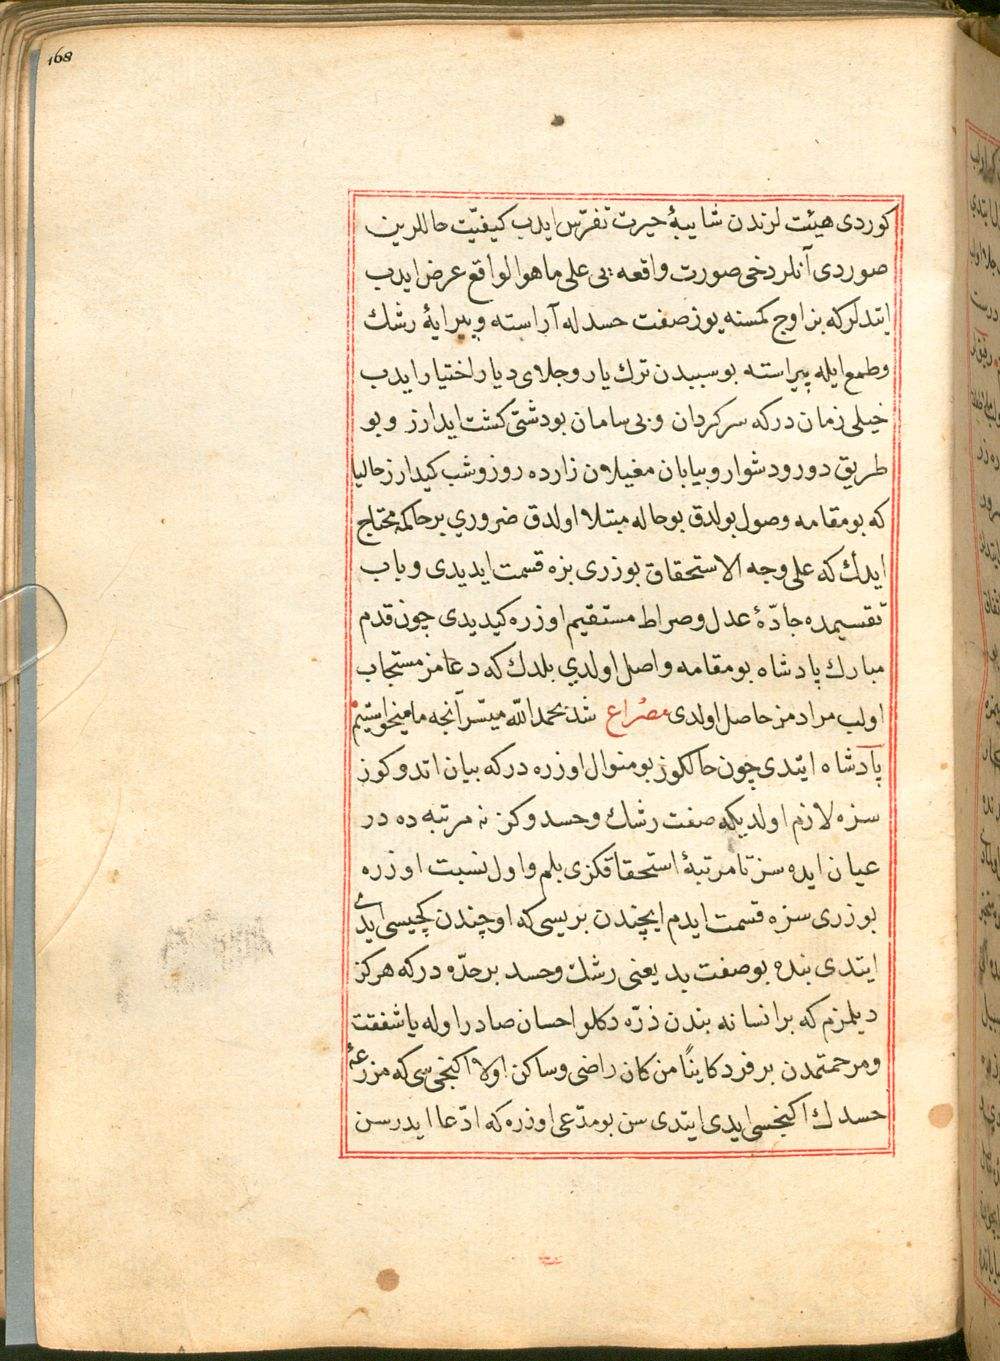 168
كوردی هیئت لرندن شایبۀ حیرت تفرّس ایدب کیفیّت حاللرین
صوردی آنلر دخی صورت واقعه یی علی ما هو الواقع عرض ایدب
ایتدلر که بز اوچ کمسنه یوز صفت حسد له آراسته و پیرایۀ رشك
و طمع ایله پیراسته بو سببدن ترك یار و جلای دیار اختیار ایدب
خیلی زمان در که سرکردان و بی سامان بو دشتی کشت ایدارز و بو
طریق دور و دشوار و بیابان مغیلان زارده روز و شب کیدارز حالیا
که بو مقامه وصول بولدق بو حاله مبتلا اولدق ضروری بر حاکمه محتاج
ایدك که علی وجه الاستحقاق بو زری بزه قسمت ایدیدی و باب
تقسیمده جادّۀ عدل و صراط مستقیم اوزره کیدیدی چون قدم
مبارك پادشاه بو مقامه واصل اولدی بلدك که دعامز مستجاب
اولب مرادمز حاصل اولدی مصراع شد بحمد اللّه میسّر آنچه ما میخواستیم
پادشاه ایتدی چون حالکوز بو منوال اوزره در که بیان اتدوکوز
سزه لازم اولدیکه صفت رشك و حسدوکز نه مرتبه ده در
عیان ایده سز تا مرتبۀ استحقاقکزی بلم و اول نسبت اوزره
بو زری سزه قسمت ایدم ایچندن بریسی که اوچندن کچیسی ایدی
ایتدی بنده بو صفت بد یعنی رشك و حسد بر حدّه در که هرکز
دیلمزم که بر انسانه بندن ذرّه دکلو احسان صادر اوله یا شفقت
و مرحمتمدن بر فرد کاینًا من کان راضی و ساکن اولا اکنجی سی که مزرعۀ
حسدك اکینجسی ایدی ایتدی سن بو مدّعی اوزره که ادّعا ایدرسن